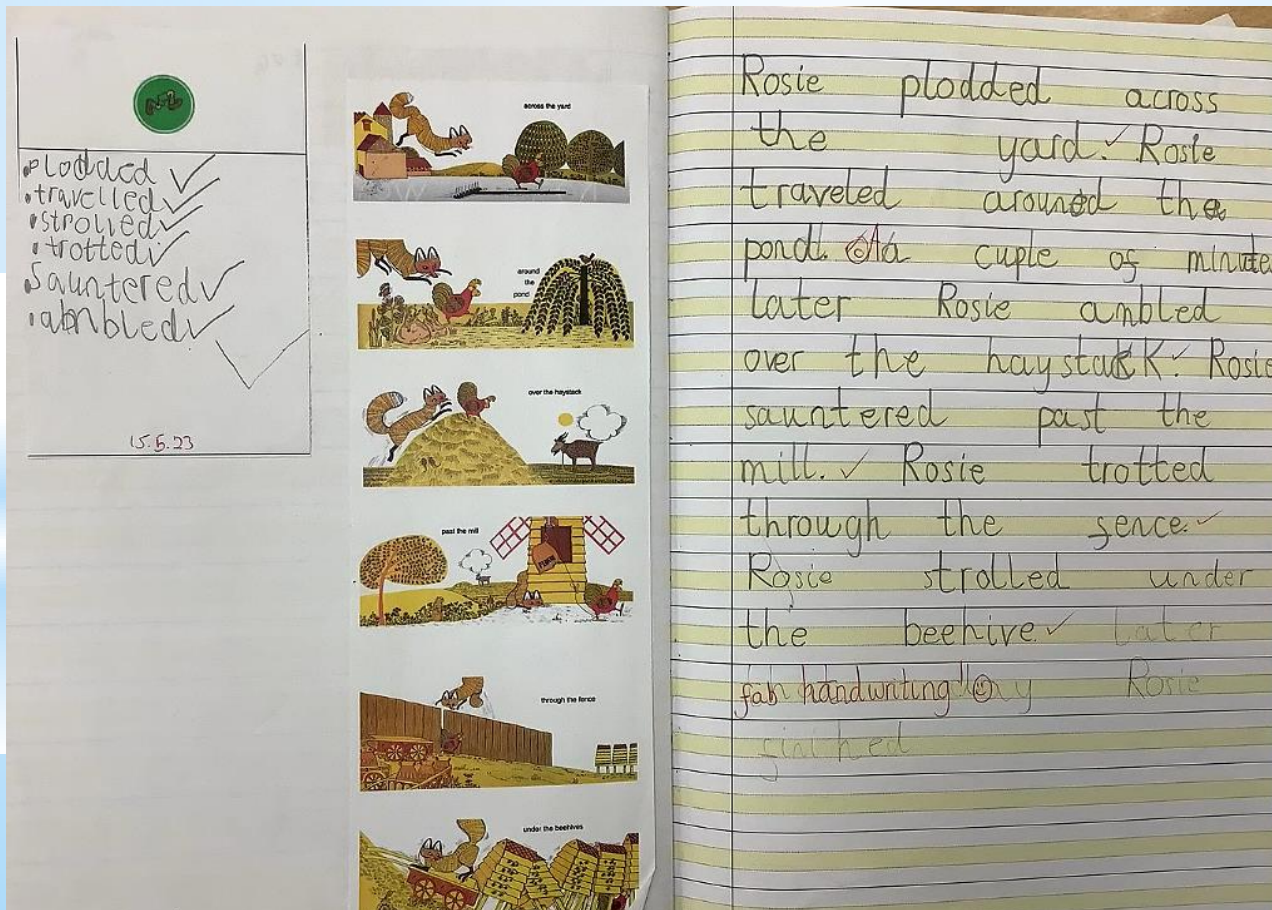 plodded
travelled
strolled
trotted
Sauntered
ambled
15.5.23
across the yard
around
the
pond
over the haystack
past the mill
through the fence
under the beehives
Rosie plodded across
the yard. Rosie
traveled around the
pond. A
cuple of minute
later Rosie ambled
over the haystack. Rosie
sauntered past the
mill. Rosie trotted
through the sence.
Rosie strolled under
the beehive. later
fab handwriting! Rosie